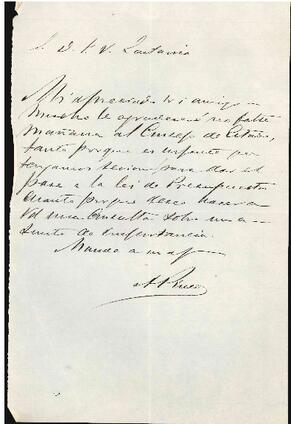 S. D. F. V. Zantarria
Mi apreciado tri amigo
Mucho le agradeceré no falte
mañana al Consejo de Estado,
tanto porque es urgente que
tengamos sesion para dar el
pase a la lei de Presupuestos
cuanto porque deseo hacer a
Vd una consulta sobre un a-
sunto de importancia.
Mande a su af